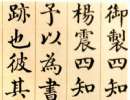 御製四知
楊震四知
予以為書
跡也彼其